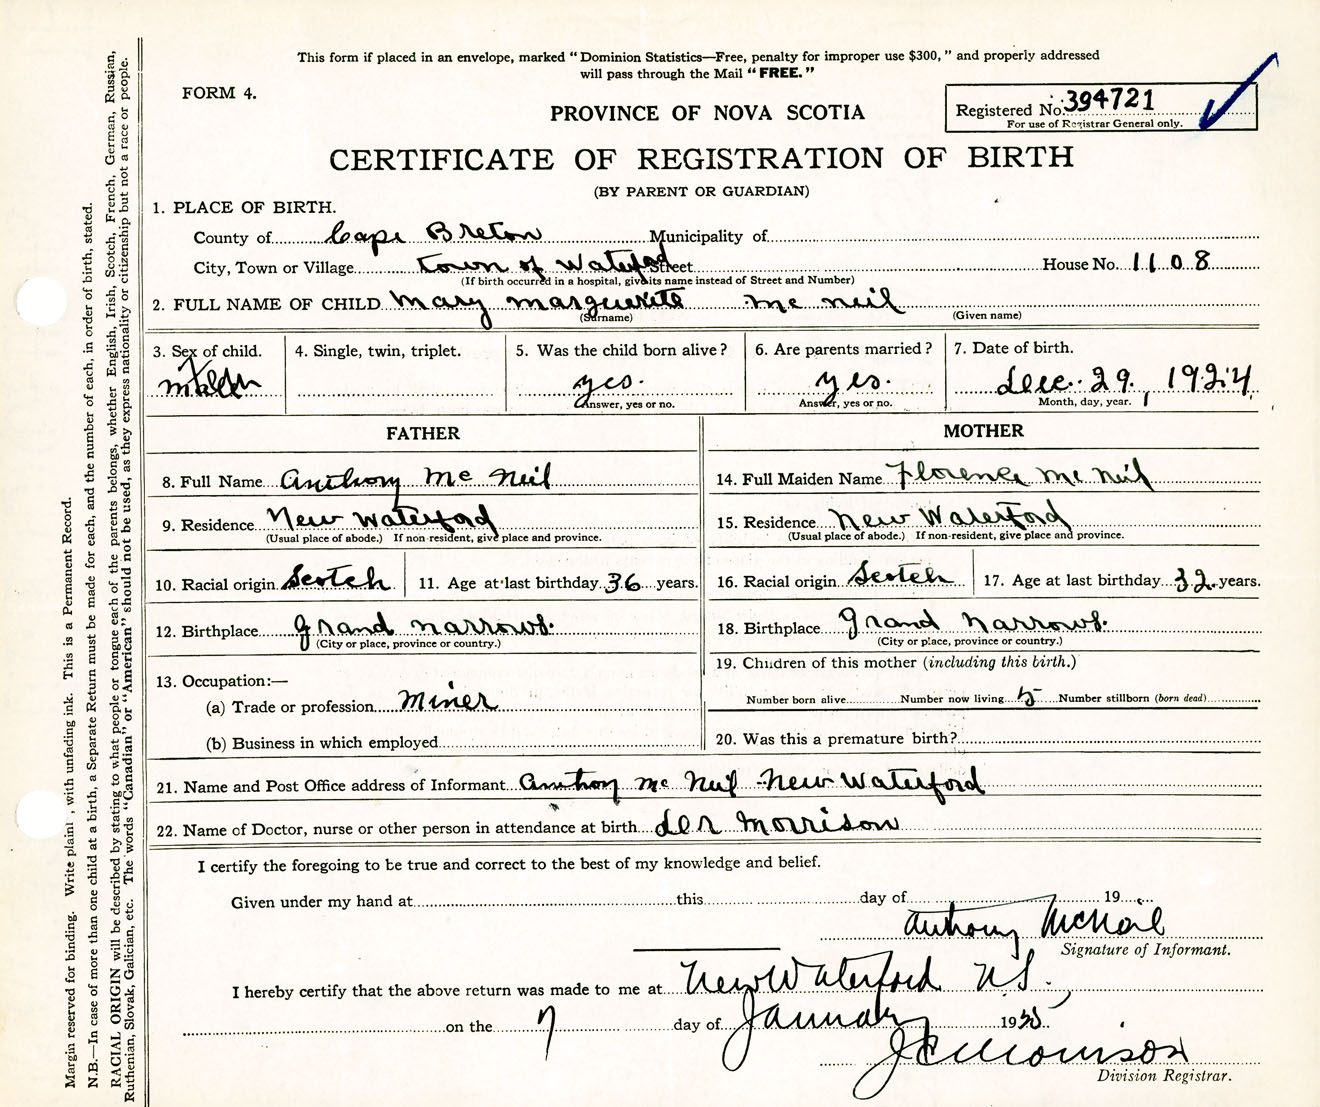 This form if placed in an envelope, marked "Dominion Statistics—Free, penalty for improper use $300," and properly addressed
will pass through the Mail "FREE."
FORM 4.
PROVINCE OF NOVA SCOTIA
Registered No. 394721
For use of Registrar General only.
CERTIFICATE OF REGISTRATION OF BIRTH
(BY PARENT OR GUARDIAN)
1. PLACE OF BIRTH.
County of Cape Breton Municipality of
City, Town or Village Town of Waterford Street House No. 1108
(If birth occurred in a hospital, give its name instead of Street and Number)
2. FULL NAME OF CHILD Mary Marguerite Mc Neil
(Surname) (Given name)
3. Sex of child. 4. Single, twin, triplet. 5. Was the child born alive? 6. Are parents married? 7. Date of birth.
yes. yes. Dec. 29. 1924
Answer, yes or no. Answer, yes or no. Month, day, year.
FATHER MOTHER
8. Full Name Anthony Mc Neil 14. Full Maiden Name Florence Mc Neil
9. Residence New Waterford 15. Residence New Waterford
(Usual place of abode.) If non-resident, give place and province. (Usual place of abode.) If non-resident, give place and province.
10. Racial origin Scotch 11. Age at last birthday 36 years. 16. Racial origin Scotch 17. Age at last birthday 32 years.
12. Birthplace Grand Narrows. 18. Birthplace Grand Narrows.
(City or place, province or country.) (City or place, province or country.)
19. Children of this mother (including this birth.)
13. Occupation:—
(a) Trade or profession Miner Number born alive Number now living 5 Number stillborn (born dead)
(b) Business in which employed 20. Was this a premature birth?
21. Name and Post Office address of Informant Anthony Mc Neil New Waterford
22. Name of Doctor, nurse or other person in attendance at birth Morrison
I certify the foregoing to be true and correct to the best of my knowledge and belief.
Given under my hand at this day of 19
Anthony McNeil
Signature of Informant.
I hereby certify that the above return was made to me at New Waterford N.S.
on the 7 day of January 1935
J C Morrison
Division Registrar.
Margin reserved for binding. Write plainl , with unfading ink. This is a Permanent Record.
N.B.—In case of more than one child at a birth, a Separate Return must be made for each, and the number of each, in order of birth, stated.
RACIAL ORIGIN will be described by stating to what people or tongue each of the parents belongs, whether English, Irish, Scotch, French, German, Russian,
Ruthenian, Slovak, Galician, etc. The words "Canadian" or "American" should not be used, as they express nationality or citizenship but not a race or people.